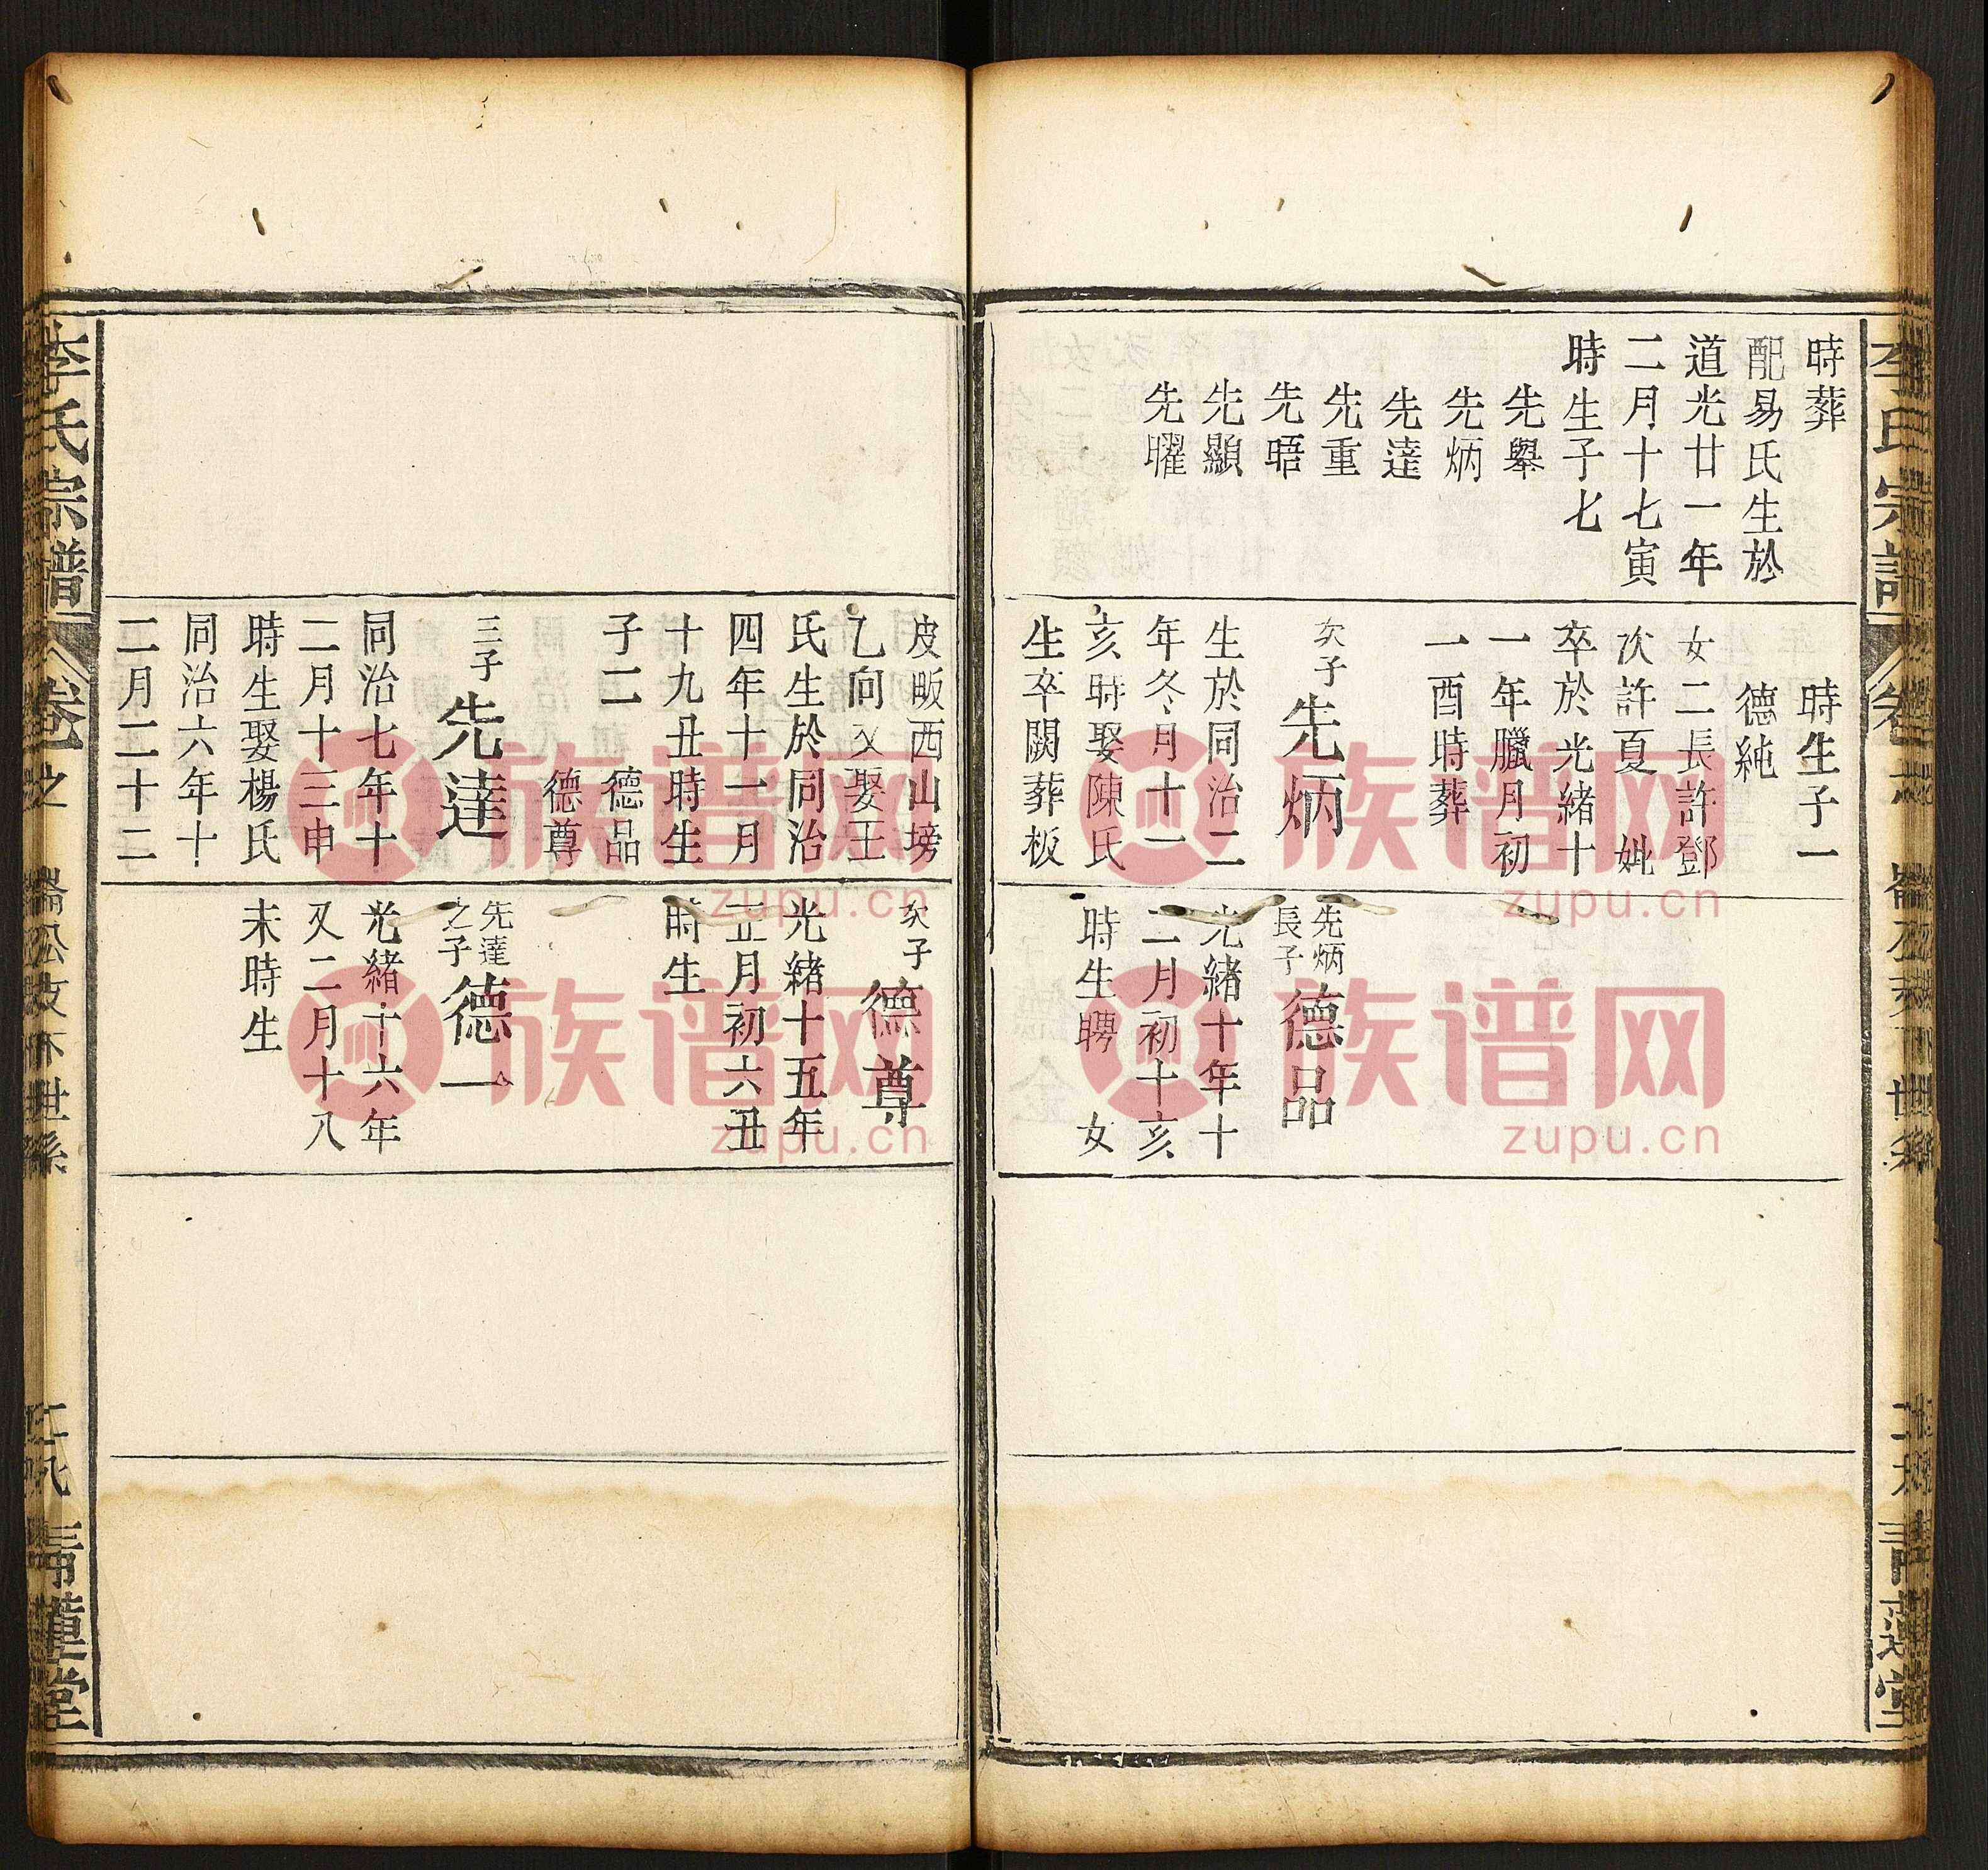 時葬
配易氏生於
道光廿一年
二月十七寅
時生子七
先舉
先炳
先達
先重
先晤
先顯
先曜
時生子一
德純
女二長許鄧
次許夏 妣
卒於光緒十
一年臘月初
一酉時葬
次子 先炳
生於同治二
年冬月十一
亥時娶陳氏
生卒闕葬板
先炳長子 德品
光緒十年十
二月初十亥
時生聘 女
皮畈西山塝
乙向又娶王
氏生於同治
四年十一月
十九丑時生
子二 德品
德尊
三子 先達
同治七年十
二月十三申
時生娶楊氏
同治六年十
二月二十二
次子 德尊
光緒十五年
正月初六丑
時生
先達之子 德一
光緒十六年
又二月十八
未時生
李氏宗譜
卷之
青蓮堂
族谱网
zupu.cn
族谱网
zupu.cn
族谱网
zupu.cn
族谱网
zupu.cn